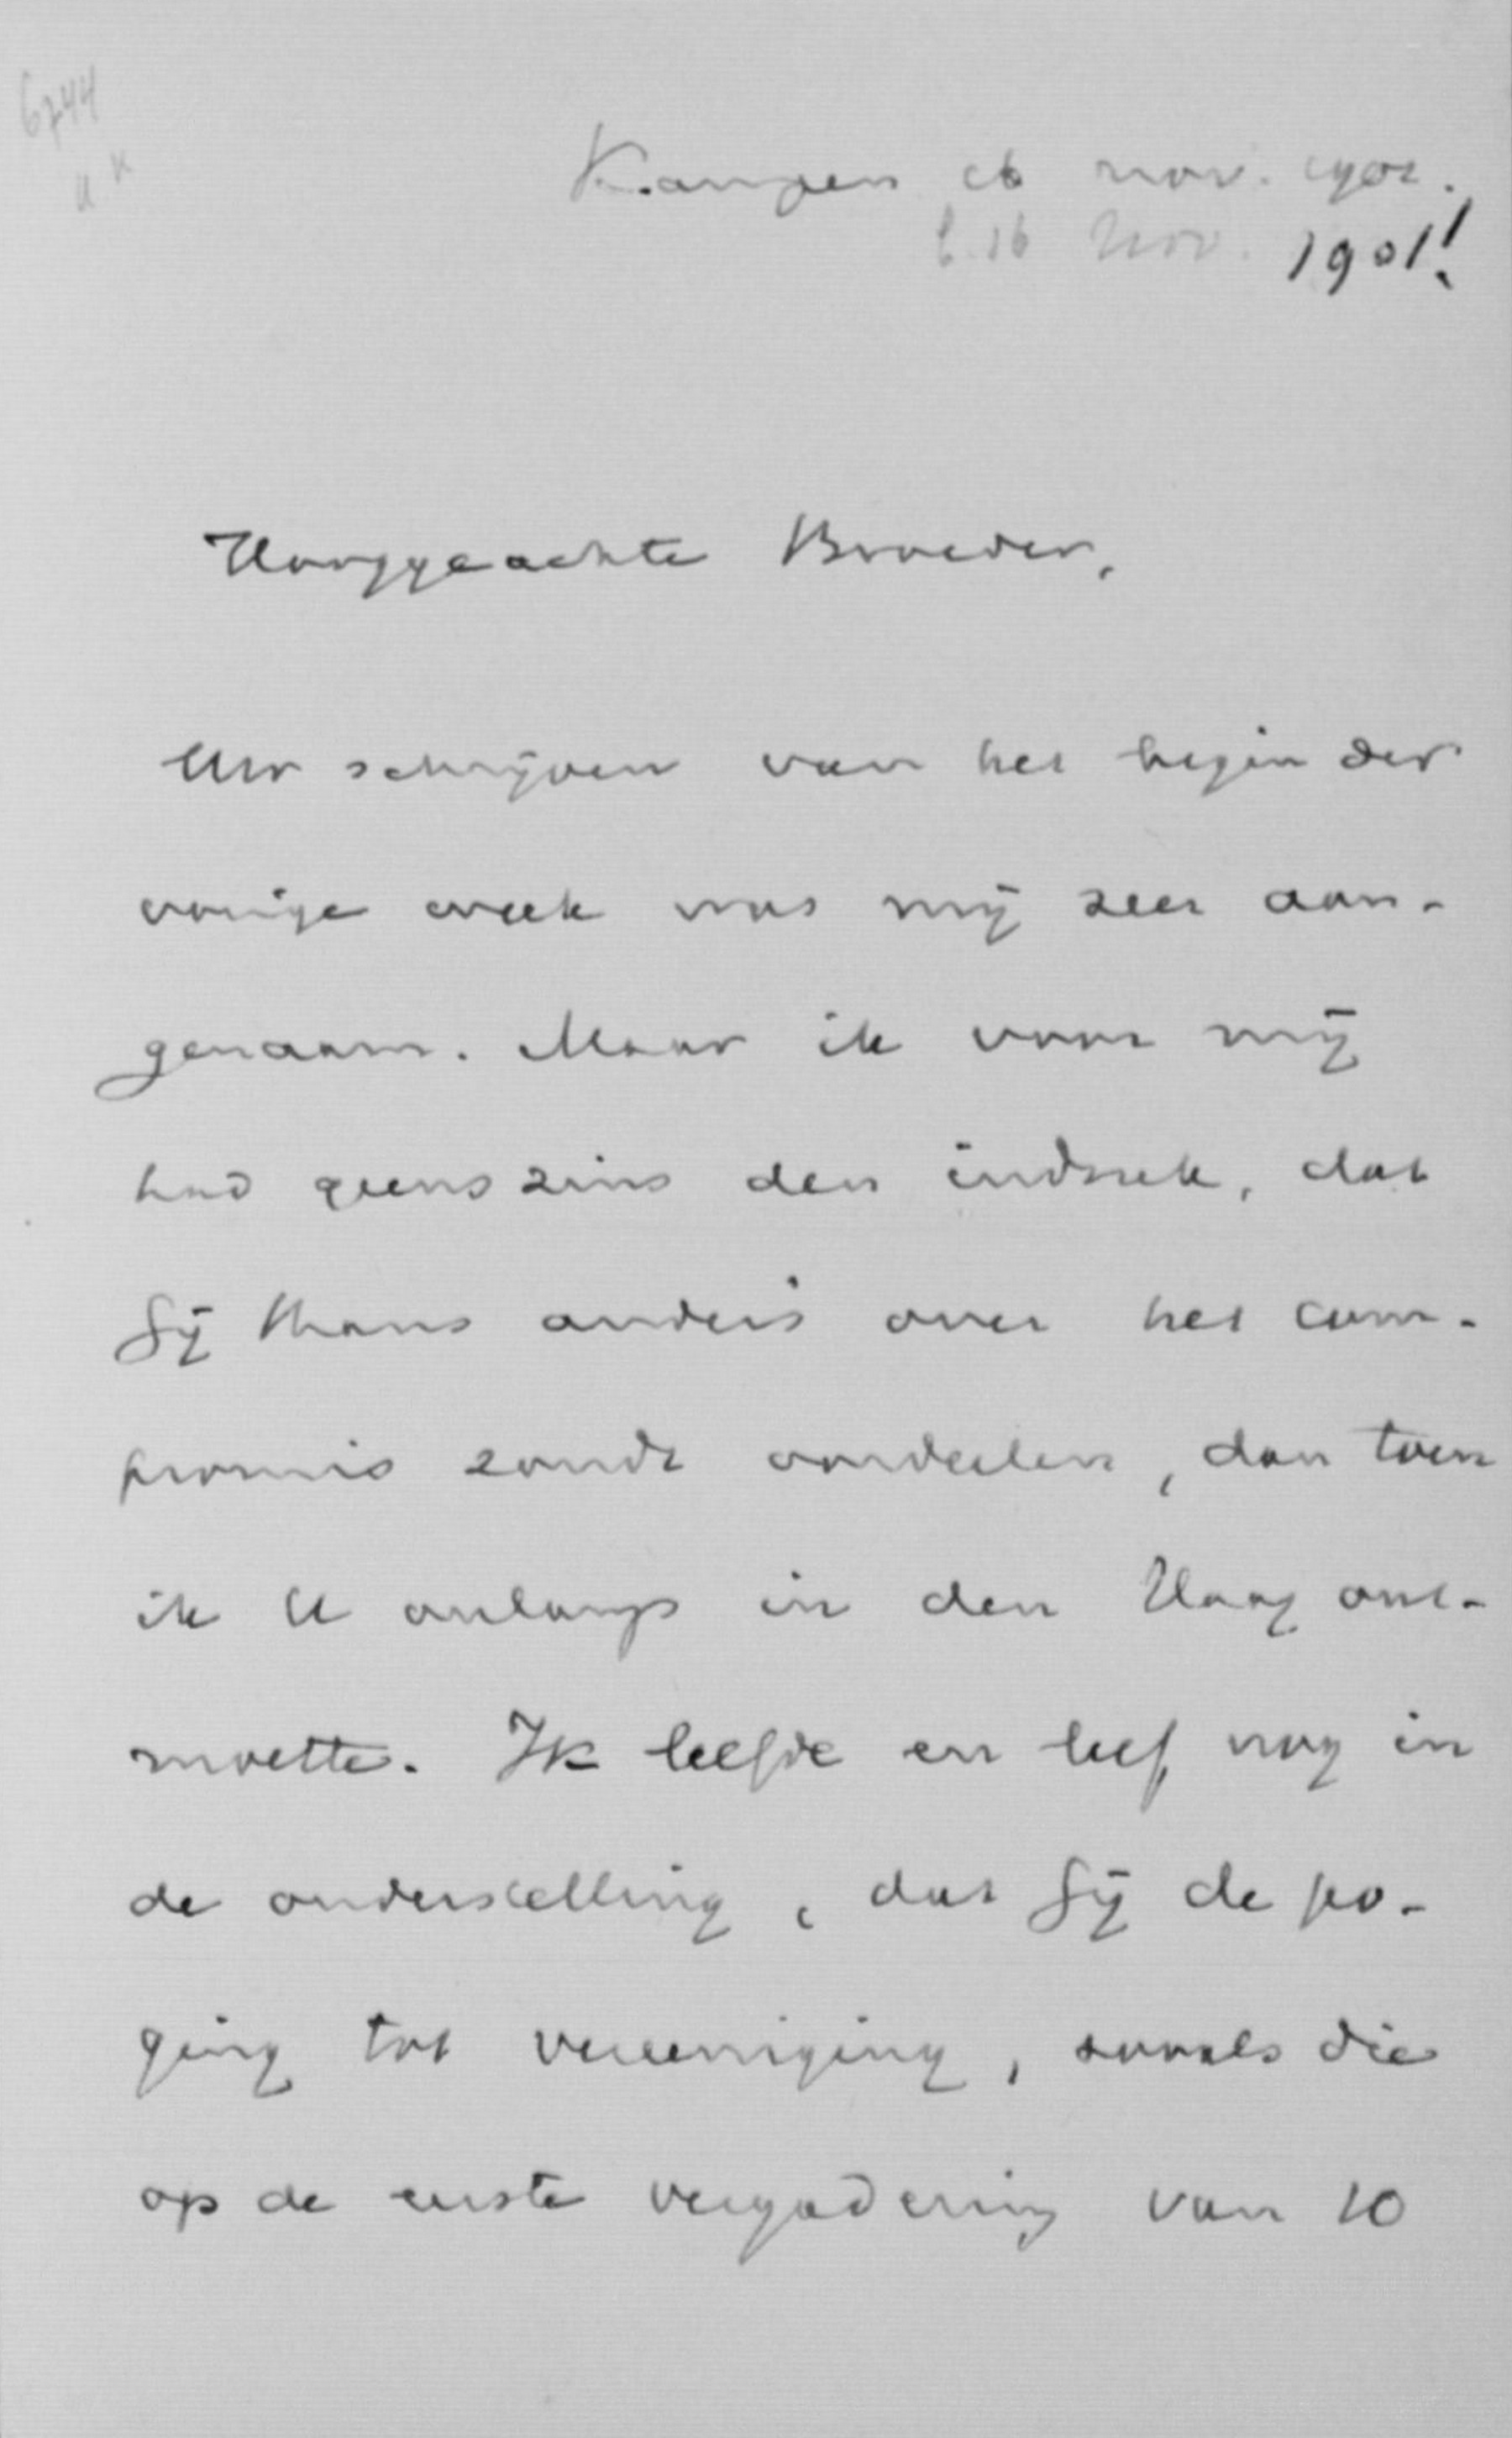 6744
K
Kampen 16 nov. 1902.
16 Nov. 1901!
Hooggeachte Broeder,
Uw schrijven van het begin der
vorige week was mij zeer aan-
genaam. Maar ik voor mij
had geenszins den indruk, dat
Gij thans anders over het com-
promis zoudt oordeelen, dan toen
ik U onlangs in den Haag ont-
moette. Ik leefde en leef nog in
de onderstelling, dat Gij de po-
ging tot vereeniging, zooals die
op de eerste vergadering van 10